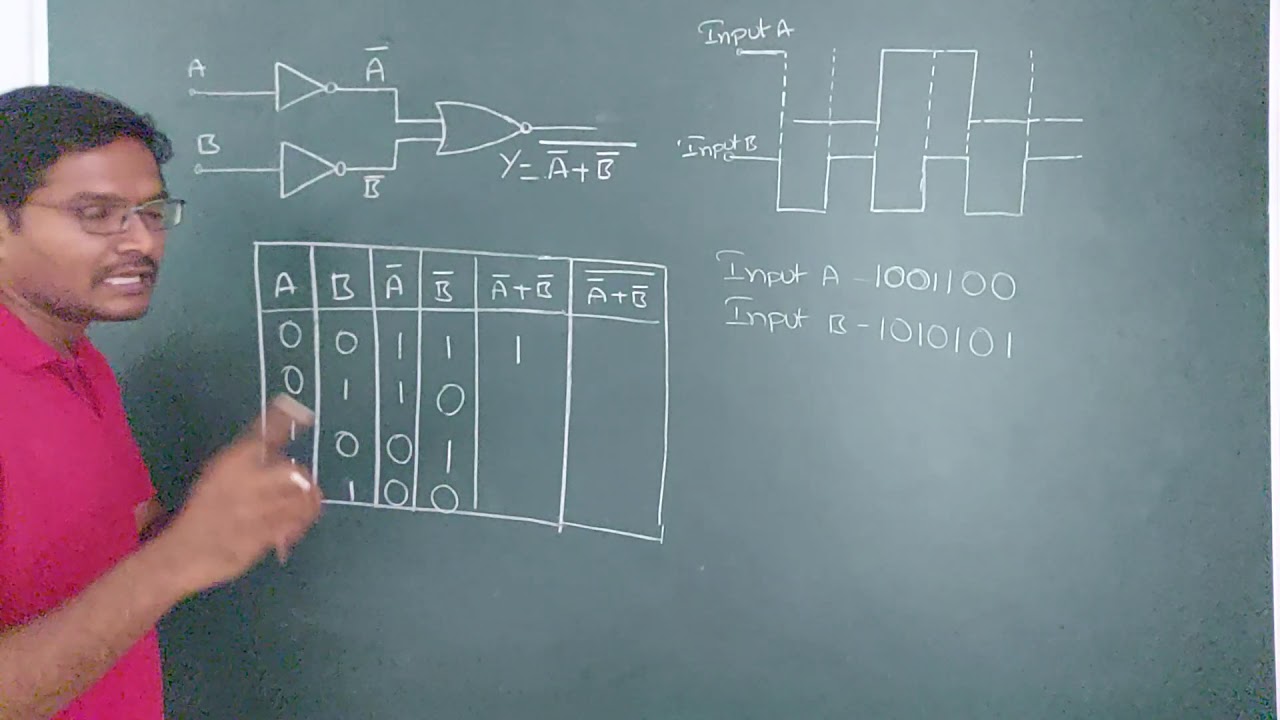 A
Ā
B
B̅
Y = \overline{Ā + B̅}
Input A
Input B
A B Ā B̅ Ā+B̅ \overline{Ā+B̅}
0 0 1 1 1
0 1 1 0
1 0 0 1
1 0 0
Input A - 1001100
Input B - 1010101